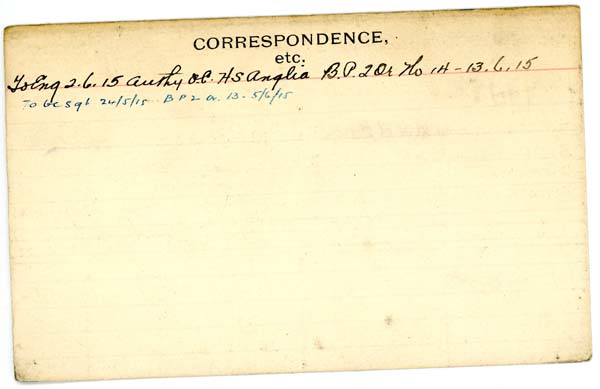 CORRESPONDENCE,
etc.
To Eng 2.6.15 Authy O.C. HS Anglia B.P. 2 Or No 14-13.6.15
To be Sgt 24/5/15 B P 2 Or. 13. 5/6/15